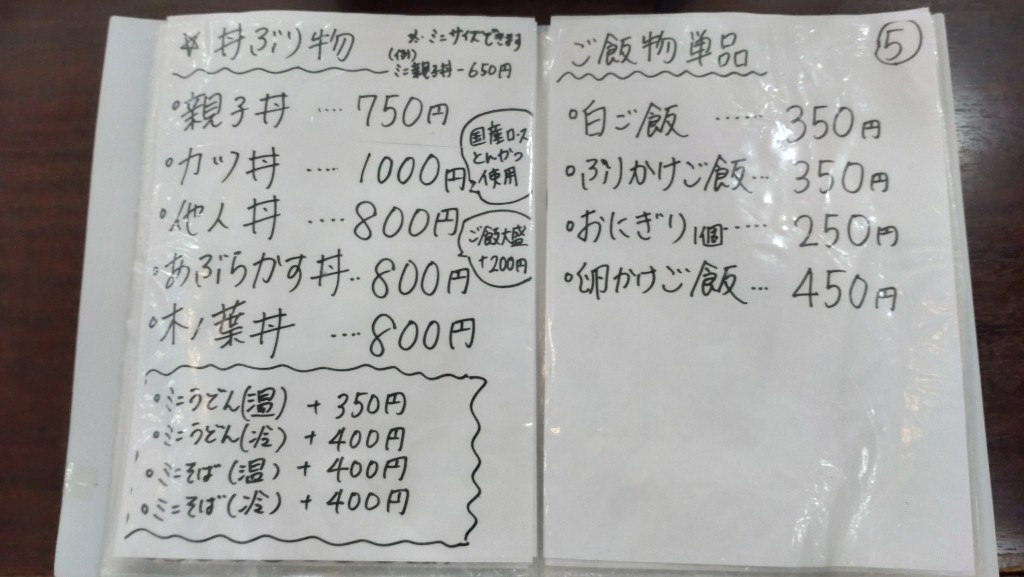 ☆ 丼ぶり物
※ミニサイズできます
(例)
ミニ親子丼-650円
○親子丼 .... 750円
○カツ丼 .... 1000円
国産ロース
とんかつ
使用
○他人丼 .... 800円
ご飯大盛
+200円
○あぶらかす丼.. 800円
○木ノ葉丼 .... 800円
○ミニうどん(温) + 350円
○ミニうどん(冷) + 400円
○ミニそば(温) + 400円
○ミニそば(冷) + 400円
ご飯物単品
⑤
○白ご飯 ...... 350円
○ぶりかけご飯... 350円
○おにぎり1個..... 250円
○卵かけご飯... 450円